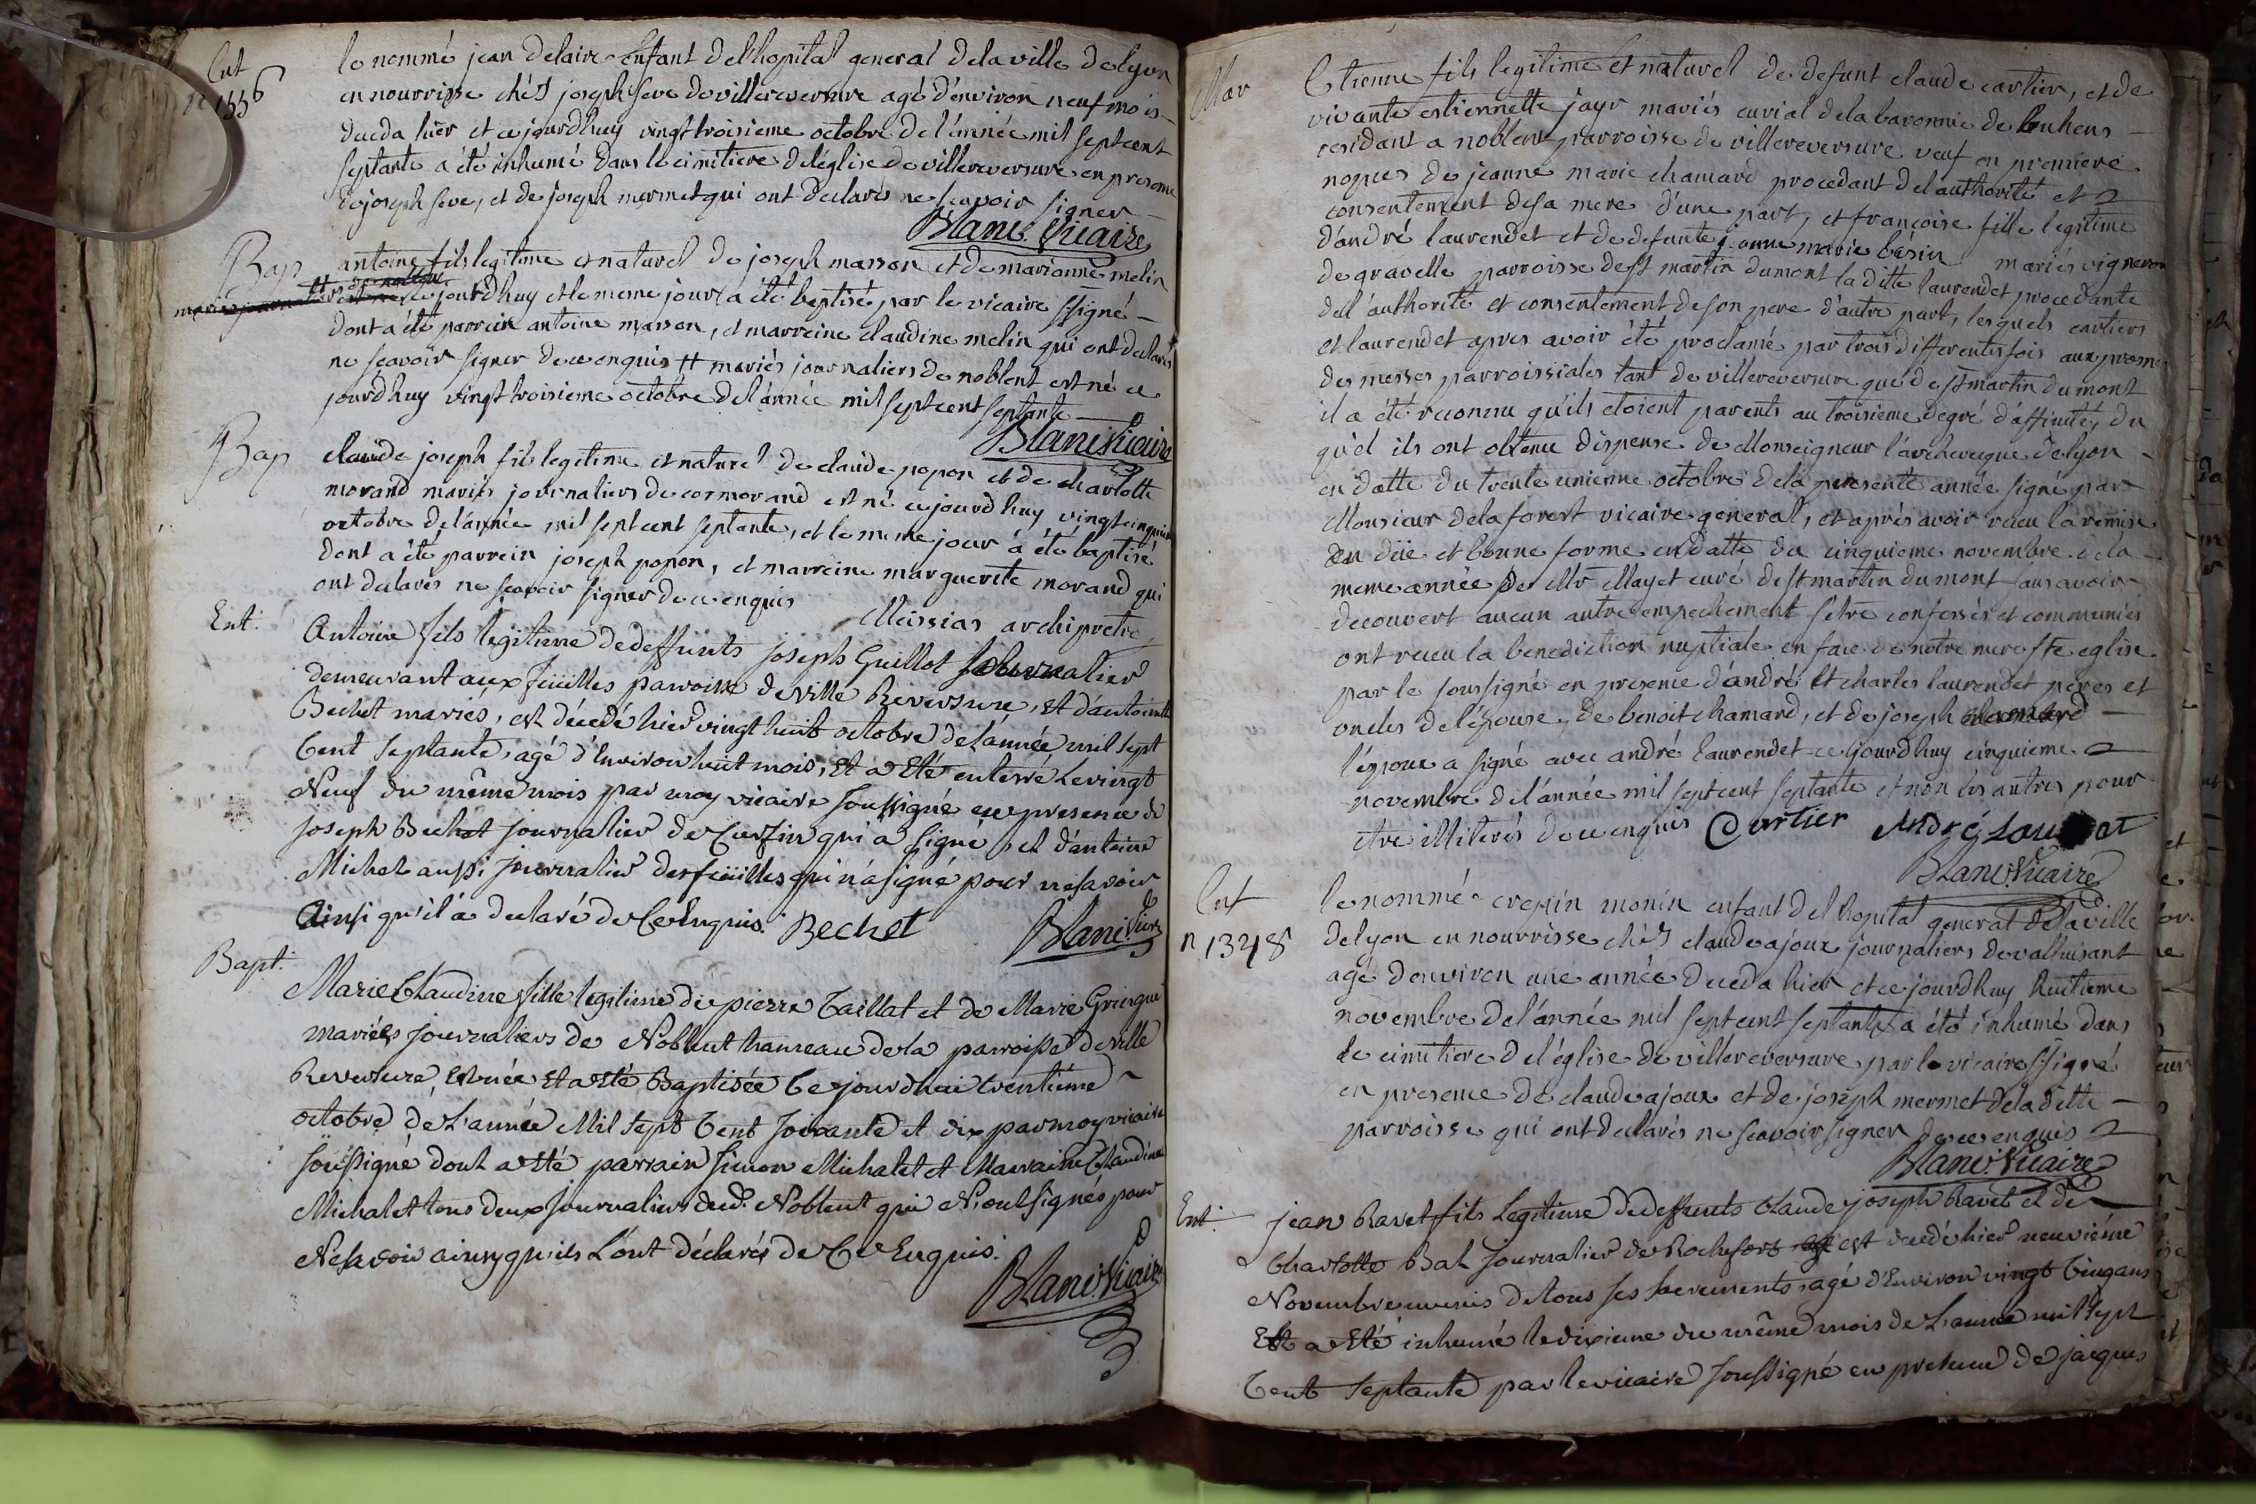 Ent
n 1556
le nommé jean delaire Enfant de l'hopital general de la ville de lyon
en nourrisse chés joseph seve de villereversure agé d'environ neuf mois
deceda hier et cejourdhuy vingt troisieme octobre de l'année mil septcent
septante a été inhumé dans le cimitiere de l'église de villereversure en presence
de joseph seve, et de joseph mermet qui ont declarés ne scavoir signer
Blanc Vicaire
Bap
antoine fils legitime et naturel de joseph masson et de marianne melin
cejourdhuy et le meme jour a été baptisé par le vicaire ssigné
dont a été parrein antoine masson, et marreine claudine melin qui ont declarés
ne scavoir signer de ce enquis # mariés journaliers de noblent est né ce
jourdhuy vingt troisieme octobre de l'année mil septcent septante
Blanc Vicaire
Bap
claude joseph fils legitime et naturel de claude popon et de charlotte
morand mariés journaliers de cormorand est né cejourdhuy vingtcinquieme
octobre de l'année mil septcent septante, et le meme jour a été baptisé
dont a été parrein joseph popon, et marreine marguerite morand qui
ont declarés ne scavoir signer de ce enquis
Meissias archipretre
Ent.
Antoine fils legitime de deffunts joseph Guillot journalier
demeurant aux feüilles parroisse de ville Reversure, et d'antoinette
Bechet mariés, est décedé hier vingt huit octobre de l'année mil sept
Cent septante, agé d'Environ huit mois, Et a Eté enterré Le vingt
Neuf du même mois par moy vicaire soussigné en presence de
joseph Bechet journalier de Curfin qui a signé, et d'antoine
Michel aussi journalier des feüilles qui n'a signé pour ne savoir
Ainsi qu'il a declaré de Ce Enquis. Bechet
Blanc Vicre
Bapt.
Marie Claudine fille legitime de pierre Caillat et de Marie Gringue
mariés journaliers de Noblent hameau de la parroisse de ville
Reversure, est née et a eté Baptisée Ce jourdhui trentiéme
octobre de L'année Mil sept Cent soixante et dix par moy vicaire
soussigné dont a eté parrain simon Michalet et Marraine Claudine
Michalet tous deux journaliers dud. Noblent qui N'ont signés pour
Ne savoir ainsy qu'ils L'ont déclarés de Ce Enquis.
Blanc Vicaire
Mar
Etienne fils legitime et naturel de defunt claude cartier, et de
vivante estiennette jayr mariés curial de la baronnie de bouhens
residant a noblent parroisse de villereversure veuf en premiere
nopces de jeanne marie chamard procedant de l'authorité et
consentement de sa mere d'une part, et françoise fille legitime
d'andré laurendet et de defunte jeanne marie bésin mariés vigneron
de gravelle parroisse de st martin du mont la ditte laurendet procedante
de l'authorité et consentement de son pere d'autre part, lesquels cartiers
et laurendet apres avoir été proclamé par trois differentes fois aux prosnes
des messes parroissiales tant de villereversure que de st martin du mont
il a été reconnu qu'ils etoient parents au troisieme degré d'affinité, du
quel ils ont obtenu dispense de Monseigneur l'archeveque de lyon
en datte du trente unieme octobre de la presente année signé par
Monsieur de la forest vicaire general, et après avoir receu la remise
en düe et bonne forme en datte du cinquieme novembre de la
meme année de Mr Mayet curé de st martin du mont sans avoir
decouvert aucun autre empechement s'etre confessés et communiés
ont receu la benediction nuptiale en face de notre mere ste eglise
par le soussigné en presence d'andré et charles laurendet peres et
oncles de l'épouse, de benoit chamard, et de joseph chamard
l'époux a signé avec andré laurendet cejourdhuy cinquieme
novembre de l'année mil septcent septante et non les autres pour
etre illiterés de ce enquis Cartier André Laurendet
Blanc Vicaire
Ent
n 1348
le nommé crepin monin enfant de l'hopital general de la ville
de lyon en nourrisse chés claude ajoux journaliers de valluisant
agé d'environ une année deceda hier et cejourdhuy huitieme
novembre de l'année mil septcent septante a été inhumé dans
le cimitiere de l'église de villereversure par le vicaire ssigné
en presence de claude ajoux et de joseph mermet de la ditte
parroisse qui ont declarés ne scavoir signer de ce enquis
Blanc Vicaire
Ent.
jean Ravet fils Legitime de deffunts Claude joseph Ravet et de
Charlotte Bal journalier de Rochefort est decedé hier neuviéme
Novembre munis de tous ses sacrements, agé d'Environ vingt Cinq ans
Et a Eté inhumé le dixieme du même mois de L'année mil sept
Cent septante par le vicaire soussigné en presence de jacques